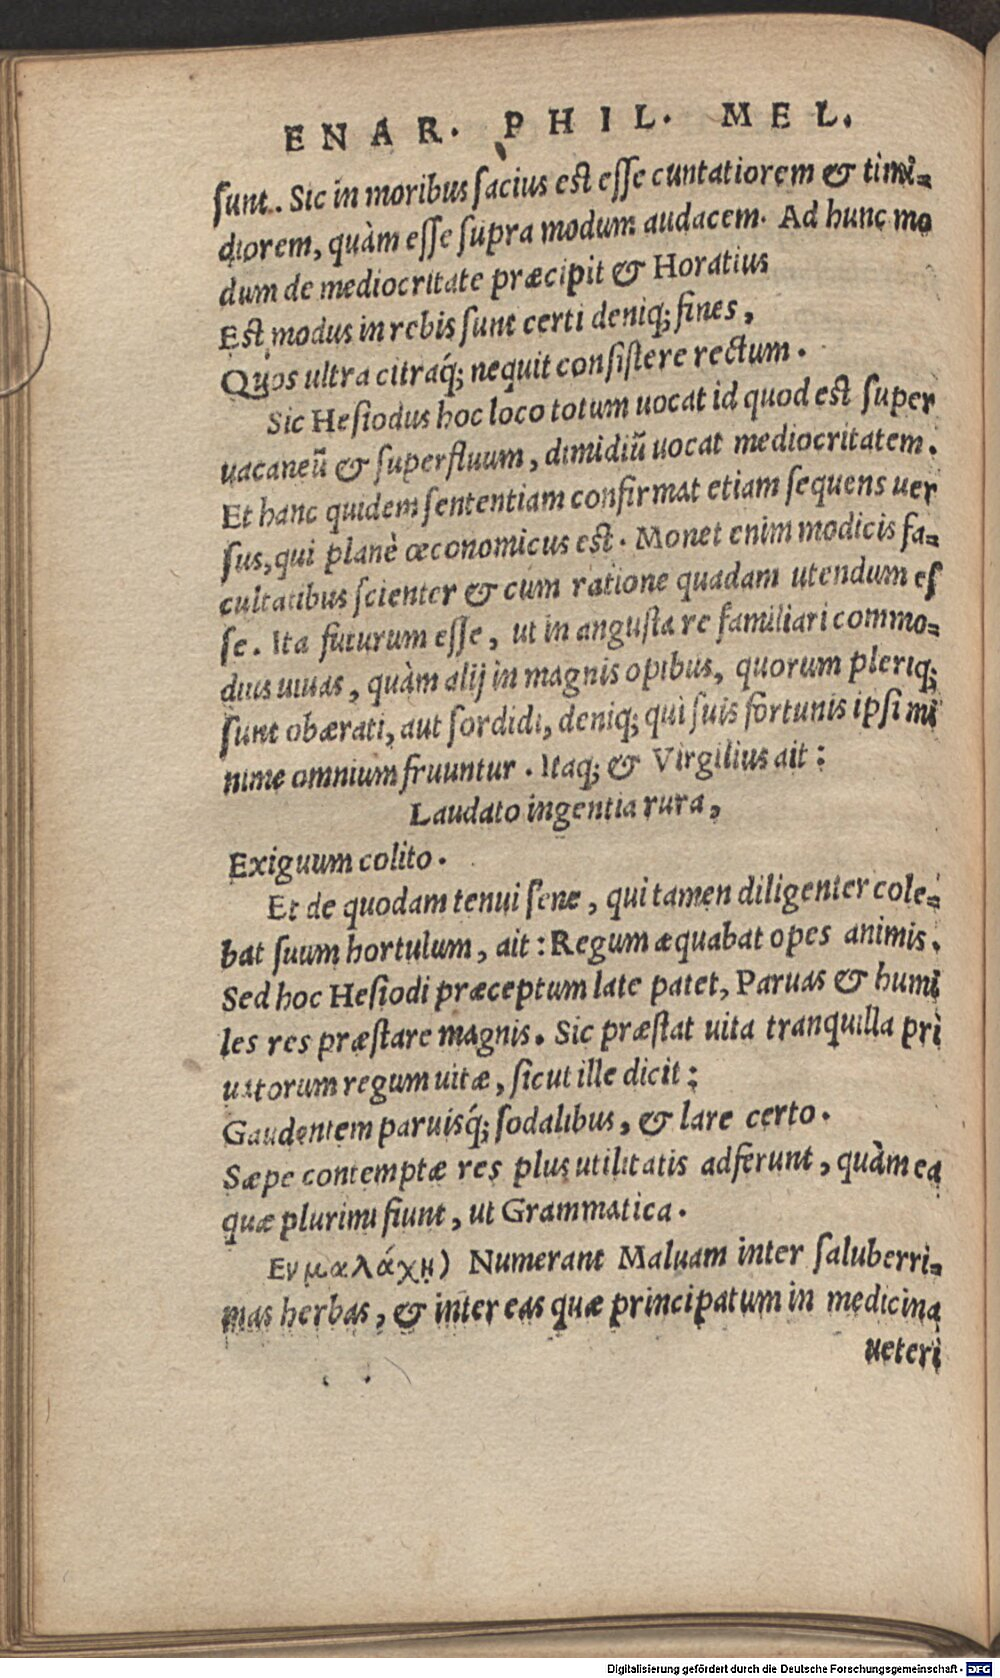 ENAR. PHIL. MEL.
sunt. Sic in moribus sacius est esse cuntatiorem & timi-
diorem, quàm esse supra modum audacem. Ad hunc mo
dum de mediocritate præcipit & Horatius
Est modus in rebis sunt certi deniq; fines,
Quos ultra citraq́; nequit consistere rectum.
Sic Hesiodus hoc loco totum uocat id quod est super
uacaneũ & superfluum, dimidiũ uocat mediocritatem.
Et hanc quidem sententiam confirmat etiam sequens uer
sus, qui planè œconomicus est. Monet enim modicis fa-
cultatibus scienter & cum ratione quadam utendum es
se. Ita futurum esse, ut in angusta re familiari commo-
dius uiuas, quàm alij in magnis opibus, quorum pleriq;
sunt obærati, aut sordidi, deniq; qui suis fortunis ipsi mi
nime omnium fruuntur. Itaq; & Virgilius ait:
Laudato ingentia rura,
Exiguum colito.
Et de quodam tenui sene, qui tamen diligenter cole-
bat suum hortulum, ait: Regum æquabat opes animis.
Sed hoc Hesiodi præceptum late patet, Paruas & humi
les res præstare magnis. Sic præstat uita tranquilla pri
uatorum regum uitæ, sicut ille dicit:
Gaudentem paruisq́; sodalibus, & lare certo.
Sæpe contemptæ res plus utilitatis adferunt, quàm ea
quæ plurimi fiunt, ut Grammatica.
Εν μαλάχῃ) Numerant Maluam inter saluberri-
mas herbas, & inter eas quæ principatum in medicina
ueteri
Digitalisierung gefördert durch die Deutsche Forschungsgemeinschaft - DFG